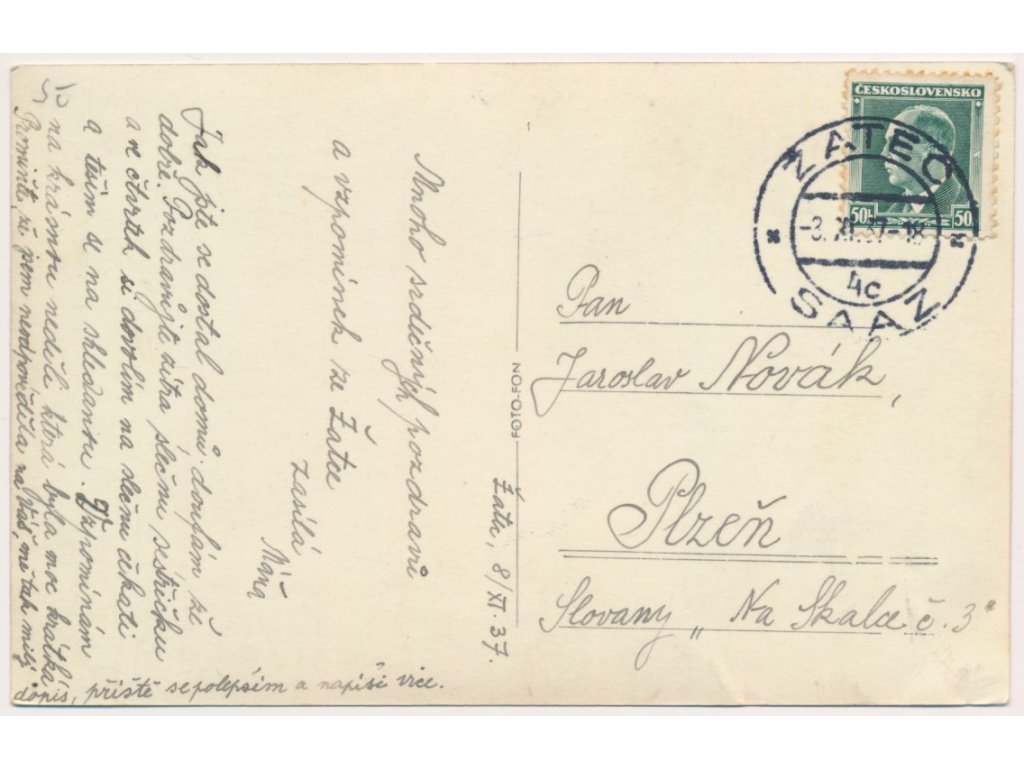 Mnoho srdečných pozdravů
a vzpomínek ze Žatce
zasílá
Máňa
Jak jste se dostal domů. doufám, že
dobře. Pozdravujte zítra slečnu sestřičku
a ve čtvrtek si dovolím na slečnu čekati
a těším se na shledanou. Vzpomínám
na krásnou neděli která byla moc krátká
Promiňte, že jsem neodpověděla na Váš, mě tak milý
dopis, příště se polepším a napíši více.
Žatec, 8/XI. 37.
FOTO-FON
ČESKOSLOVENSKO
50h 50
ŽATEC
-8. XI. 37-18
4c
SAAZ
Pan
Jaroslav Novák,
Plzeň
Slovany „Na Skalce č. 3"